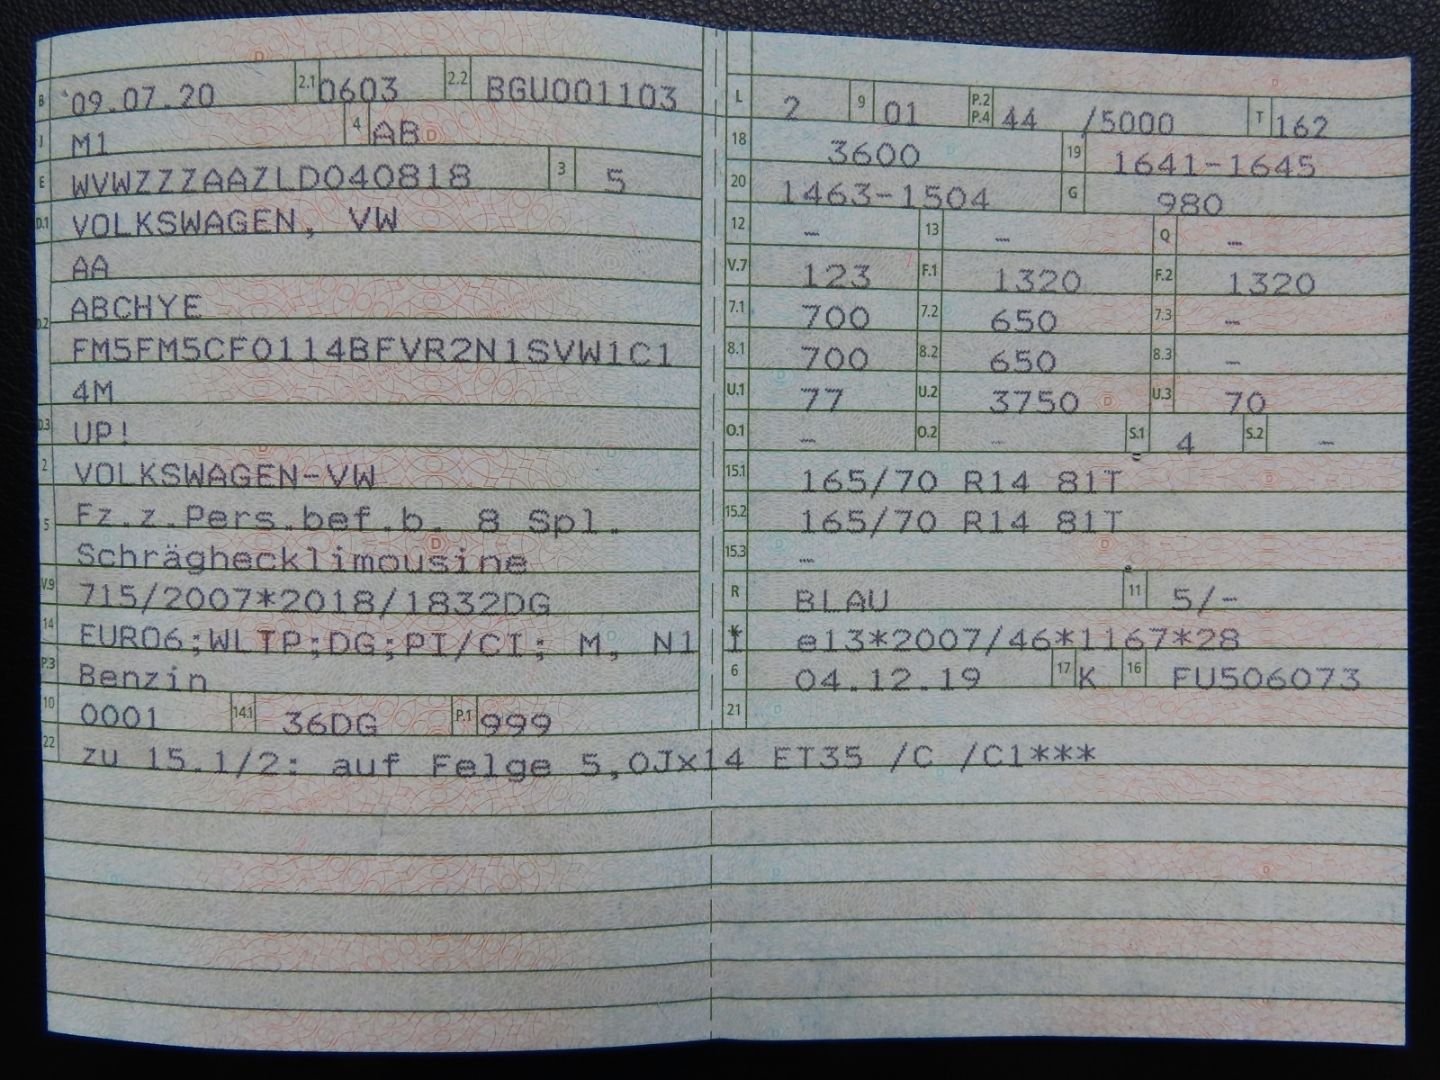 B 09.07.20 2.1 0603 2.2 BGU001103
J M1 4 AB
E WVWZZZAAZLD040818 3 5
D.1 VOLKSWAGEN, VW
AA
D.2 ABCHYE
FM5FM5CF0114BFVR2N1SVW1C1
4M
D.3 UP!
2 VOLKSWAGEN-VW
5 Fz.z.Pers.bef.b. 8 Spl.
Schräghecklimousine
V.9 715/2007*2018/1832DG
14 EURO6;WLTP;DG;PI/CI; M, N1 I
P.3 Benzin
10 0001 14.1 36DG P.1 999
22 zu 15.1/2: auf Felge 5,0Jx14 ET35 /C /C1***
L 2 9 01 P.2 P.4 44 /5000 T 162
18 3600 19 1641-1645
20 1463-1504 G 980
12 – 13 – Q –
V.7 123 F.1 1320 F.2 1320
7.1 700 7.2 650 7.3 –
8.1 700 8.2 650 8.3 –
U.1 77 U.2 3750 U.3 70
O.1 – O.2 – S.1 4 S.2 –
15.1 165/70 R14 81T
15.2 165/70 R14 81T
15.3 –
R BLAU 11 5/-
K e13*2007/46*1167*28
6 04.12.19 17 K 16 FU506073
21